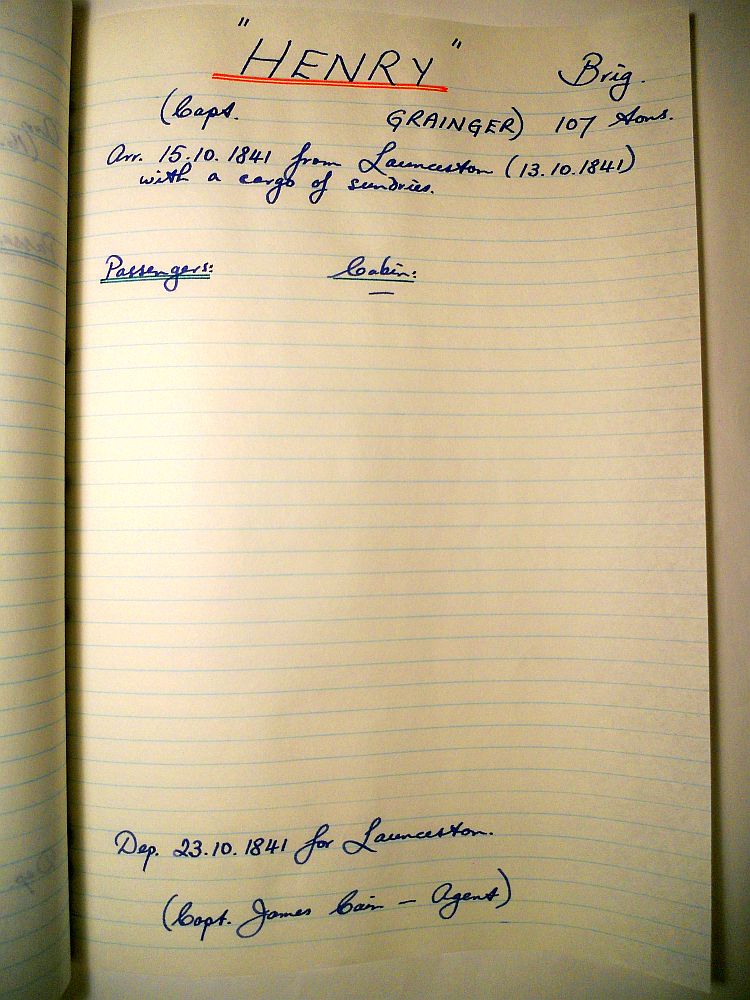 "HENRY" Brig.
(Capt. GRAINGER) 107 tons.
Arr. 15.10.1841 from Launceston (13.10.1841)
with a cargo of sundries.
Passengers: Cabin:
—
Dep. 23.10.1841 for Launceston.
(Capt. James Cain — Agent)